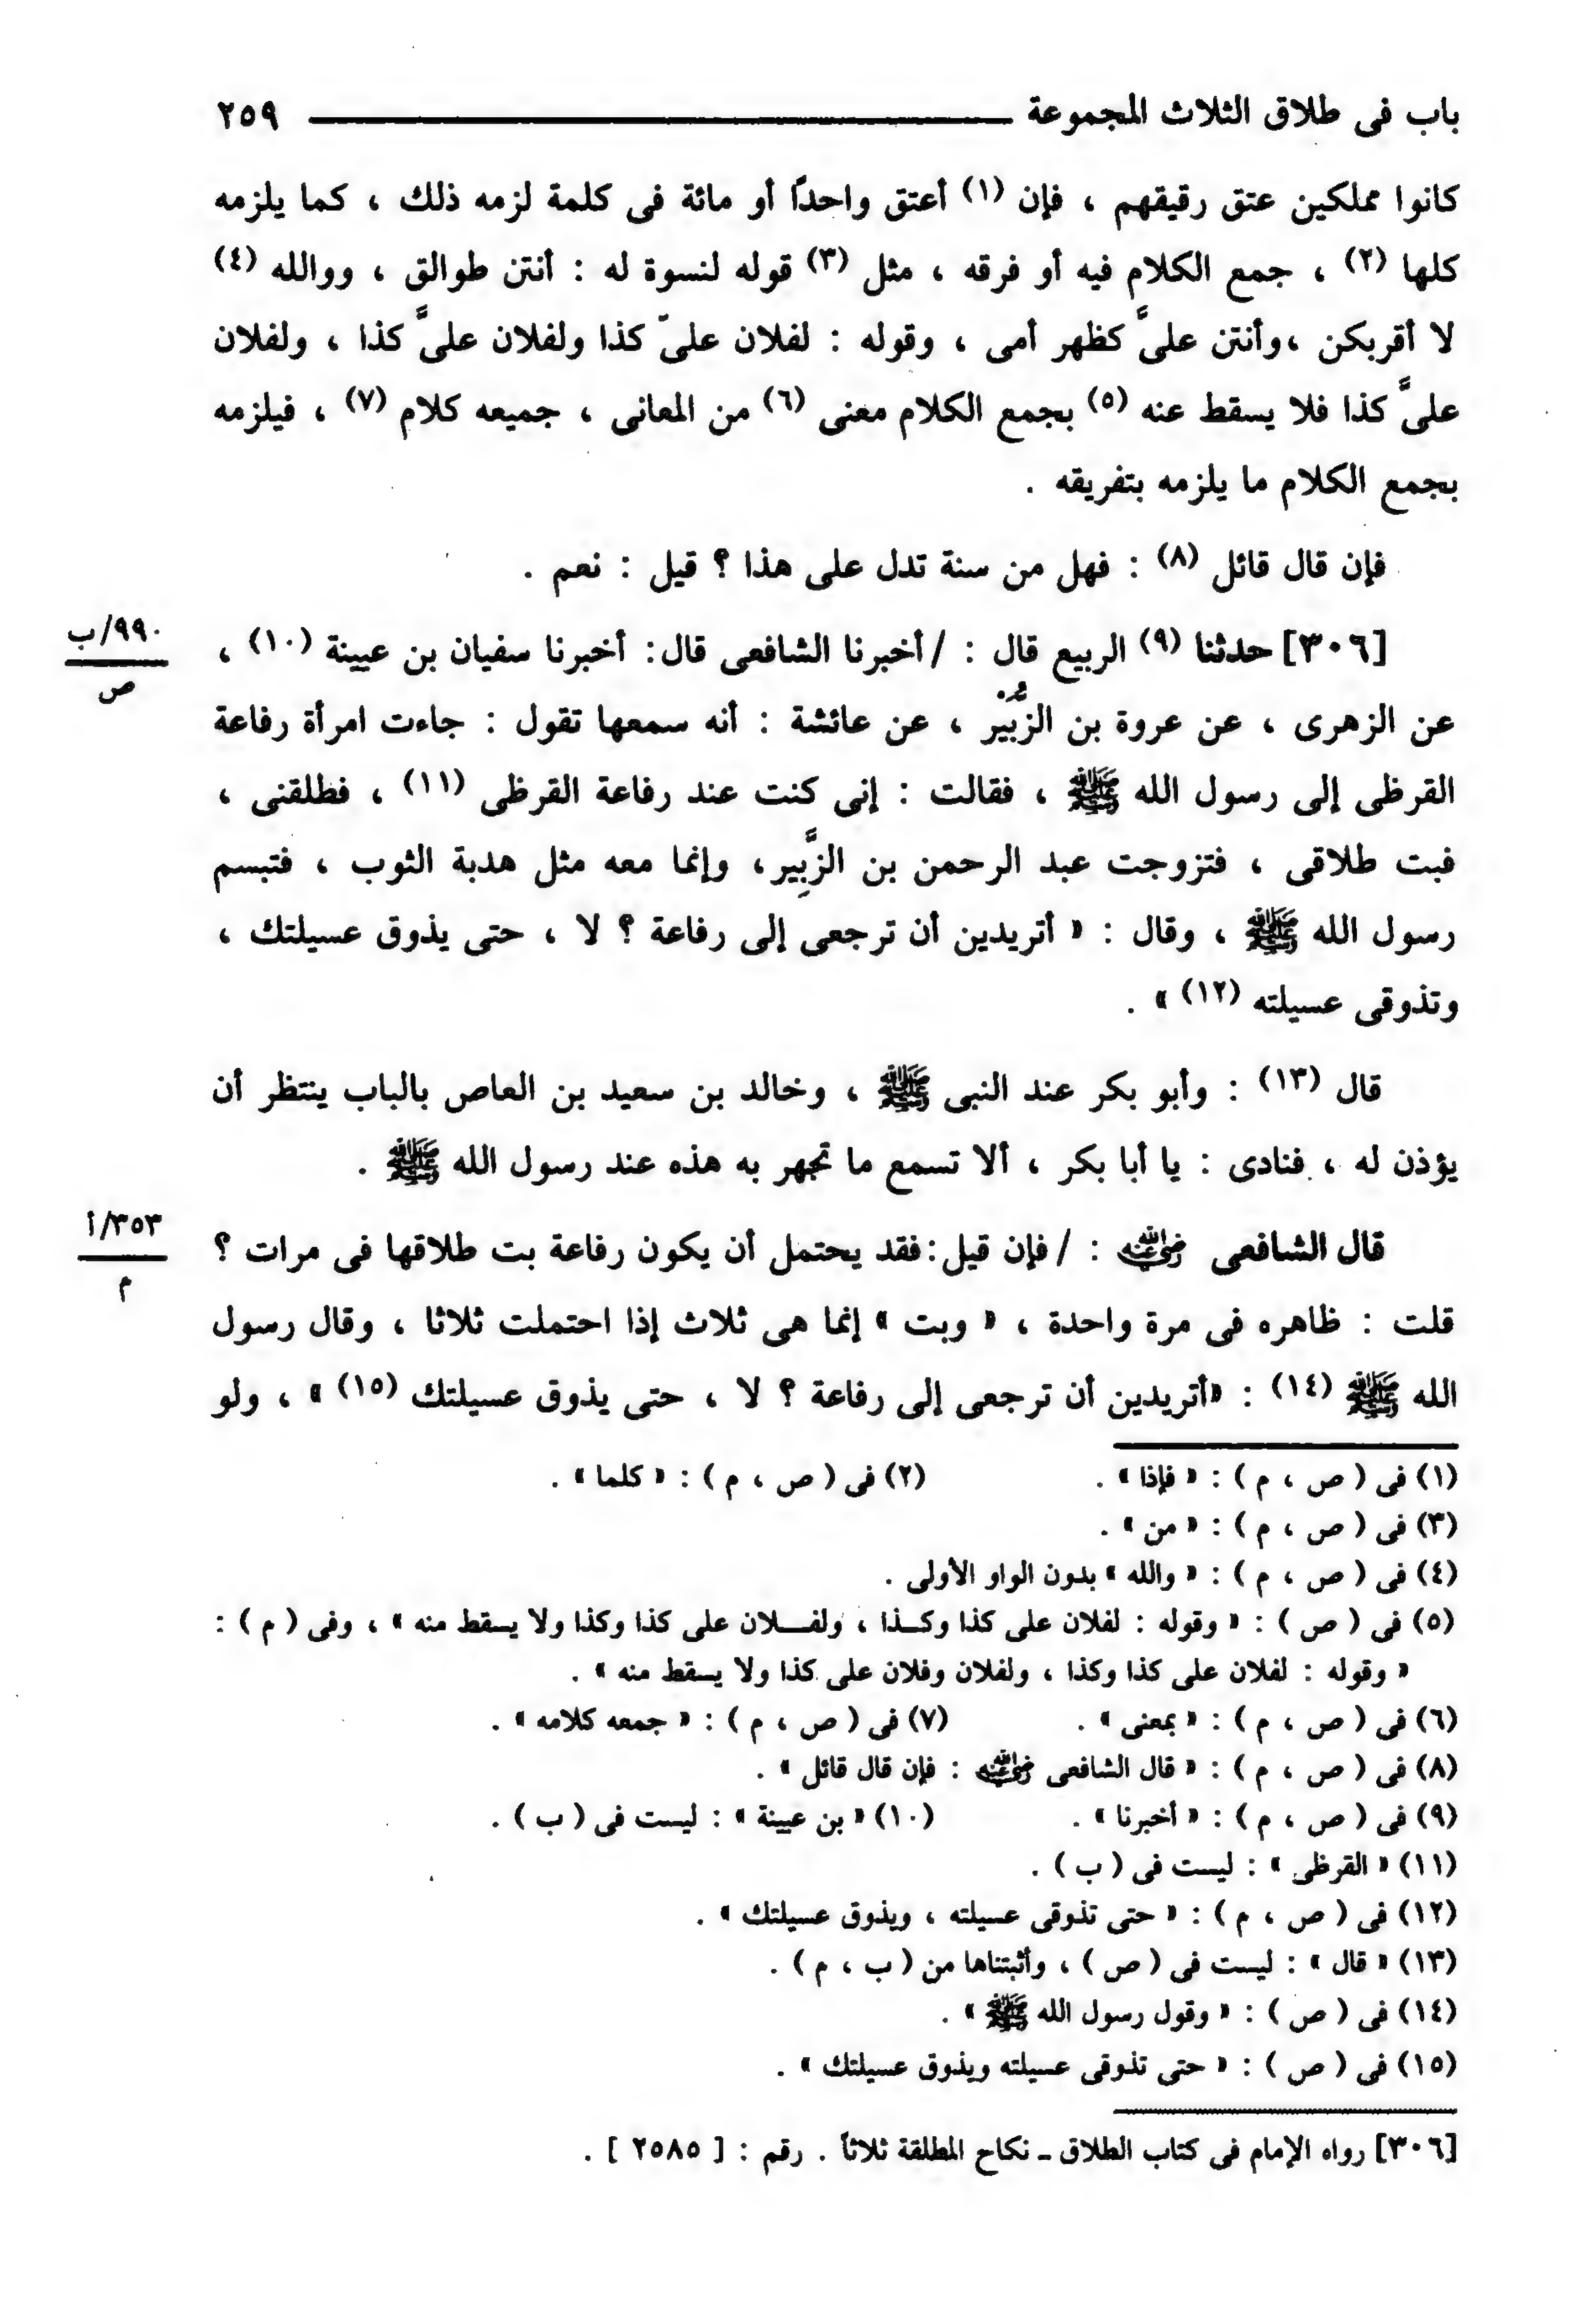 باب فى طلاق الثلاث المجموعة ٢٥٩
كانوا مملكين عتق رقيقهم ، فإن (١) أعتق واحدًا أو مائة فى كلمة لزمه ذلك ، كما يلزمه
كلها (٢) ، جمع الكلام فيه أو فرقه ، مثل (٣) قوله لنسوة له : أنتن طوالق ، ووالله (٤)
لا أقربكن ،وأنتن علىَّ كظهر أمى ، وقوله : لفلان علىّ كذا ولفلان علىَّ كذا ، ولفلان
علىَّ كذا فلا يسقط عنه (٥) بجمع الكلام معنى (٦) من المعانى ، جميعه كلام (٧) ، فيلزمه
بجمع الكلام ما يلزمه بتفريقه .
فإن قال قائل (٨) : فهل من سنة تدل على هذا ؟ قيل : نعم .
[٣٠٦] حدثنا (٩) الربيع قال : / أخبرنا الشافعى قال: أخبرنا سفيان بن عيينة (١٠) ،
٩٩٠/ب
ص
عن الزهرى ، عن عروة بن الزُّبَيْر ، عن عائشة : أنه سمعها تقول : جاءت امرأة رفاعة
القرظى إلى رسول الله ﷺ ، فقالت : إنى كنت عند رفاعة القرظى (١١) ، فطلقنى ،
فبت طلاقى ، فتزوجت عبد الرحمن بن الزَّبِير، وإنما معه مثل هدبة الثوب ، فتبسم
رسول الله ﷺ ، وقال : « أتريدين أن ترجعى إلى رفاعة ؟ لا ، حتى يذوق عسيلتك ،
وتذوقى عسيلته (١٢) » .
قال (١٣) : وأبو بكر عند النبى ﷺ ، وخالد بن سعيد بن العاص بالباب ينتظر أن
يؤذن له ، فنادى : يا أبا بكر ، ألا تسمع ما تجهر به هذه عند رسول الله ﷺ .
قال الشافعى رضي الله عنه : / فإن قيل:فقد يحتمل أن يكون رفاعة بت طلاقها فى مرات ؟
٣٥٣/أ
م
قلت : ظاهره فى مرة واحدة ، « وبت » إنما هى ثلاث إذا احتملت ثلاثا ، وقال رسول
الله ﷺ (١٤) : «أتريدين أن ترجعى إلى رفاعة ؟ لا ، حتى يذوق عسيلتك (١٥) » ، ولو
(١) فى ( ص ، م ) : « فإذا » . (٢) فى ( ص ، م ) : « كلما » .
(٣) فى ( ص ، م ) : « من » .
(٤) فى ( ص ، م ) : « والله » بدون الواو الأولى .
(٥) فى ( ص ) : « وقوله : لفلان على كذا وكـذا ، ولفـــلان على كذا وكذا ولا يسقط منه » ، وفى ( م ) :
« وقوله : لفلان على كذا وكذا ، ولفلان وفلان على كذا ولا يسقط منه » .
(٦) فى ( ص ، م ) : « بمعنى » . (٧) فى ( ص ، م ) : « جمعه كلامه » .
(٨) فى ( ص ، م ) : « قال الشافعى رضي الله عنه : فإن قال قائل » .
(٩) فى ( ص ، م ) : « أخبرنا » . (١٠) « بن عيينة » : ليست فى ( ب ) .
(١١) « القرظى » : ليست فى ( ب ) .
(١٢) فى ( ص ، م ) : « حتى تذوقى عسيلته ، ويذوق عسيلتك » .
(١٣) « قال » : ليست فى ( ص ) ، وأثبتناها من ( ب ، م ) .
(١٤) فى ( ص ) : « وقول رسول الله ﷺ » .
(١٥) فى ( ص ) : « حتى تذوقى عسيلته ويذوق عسيلتك » .
[٣٠٦] رواه الإمام فى كتاب الطلاق ـ نكاح المطلقة ثلاثاً . رقم : [ ٢٥٨٥ ] .